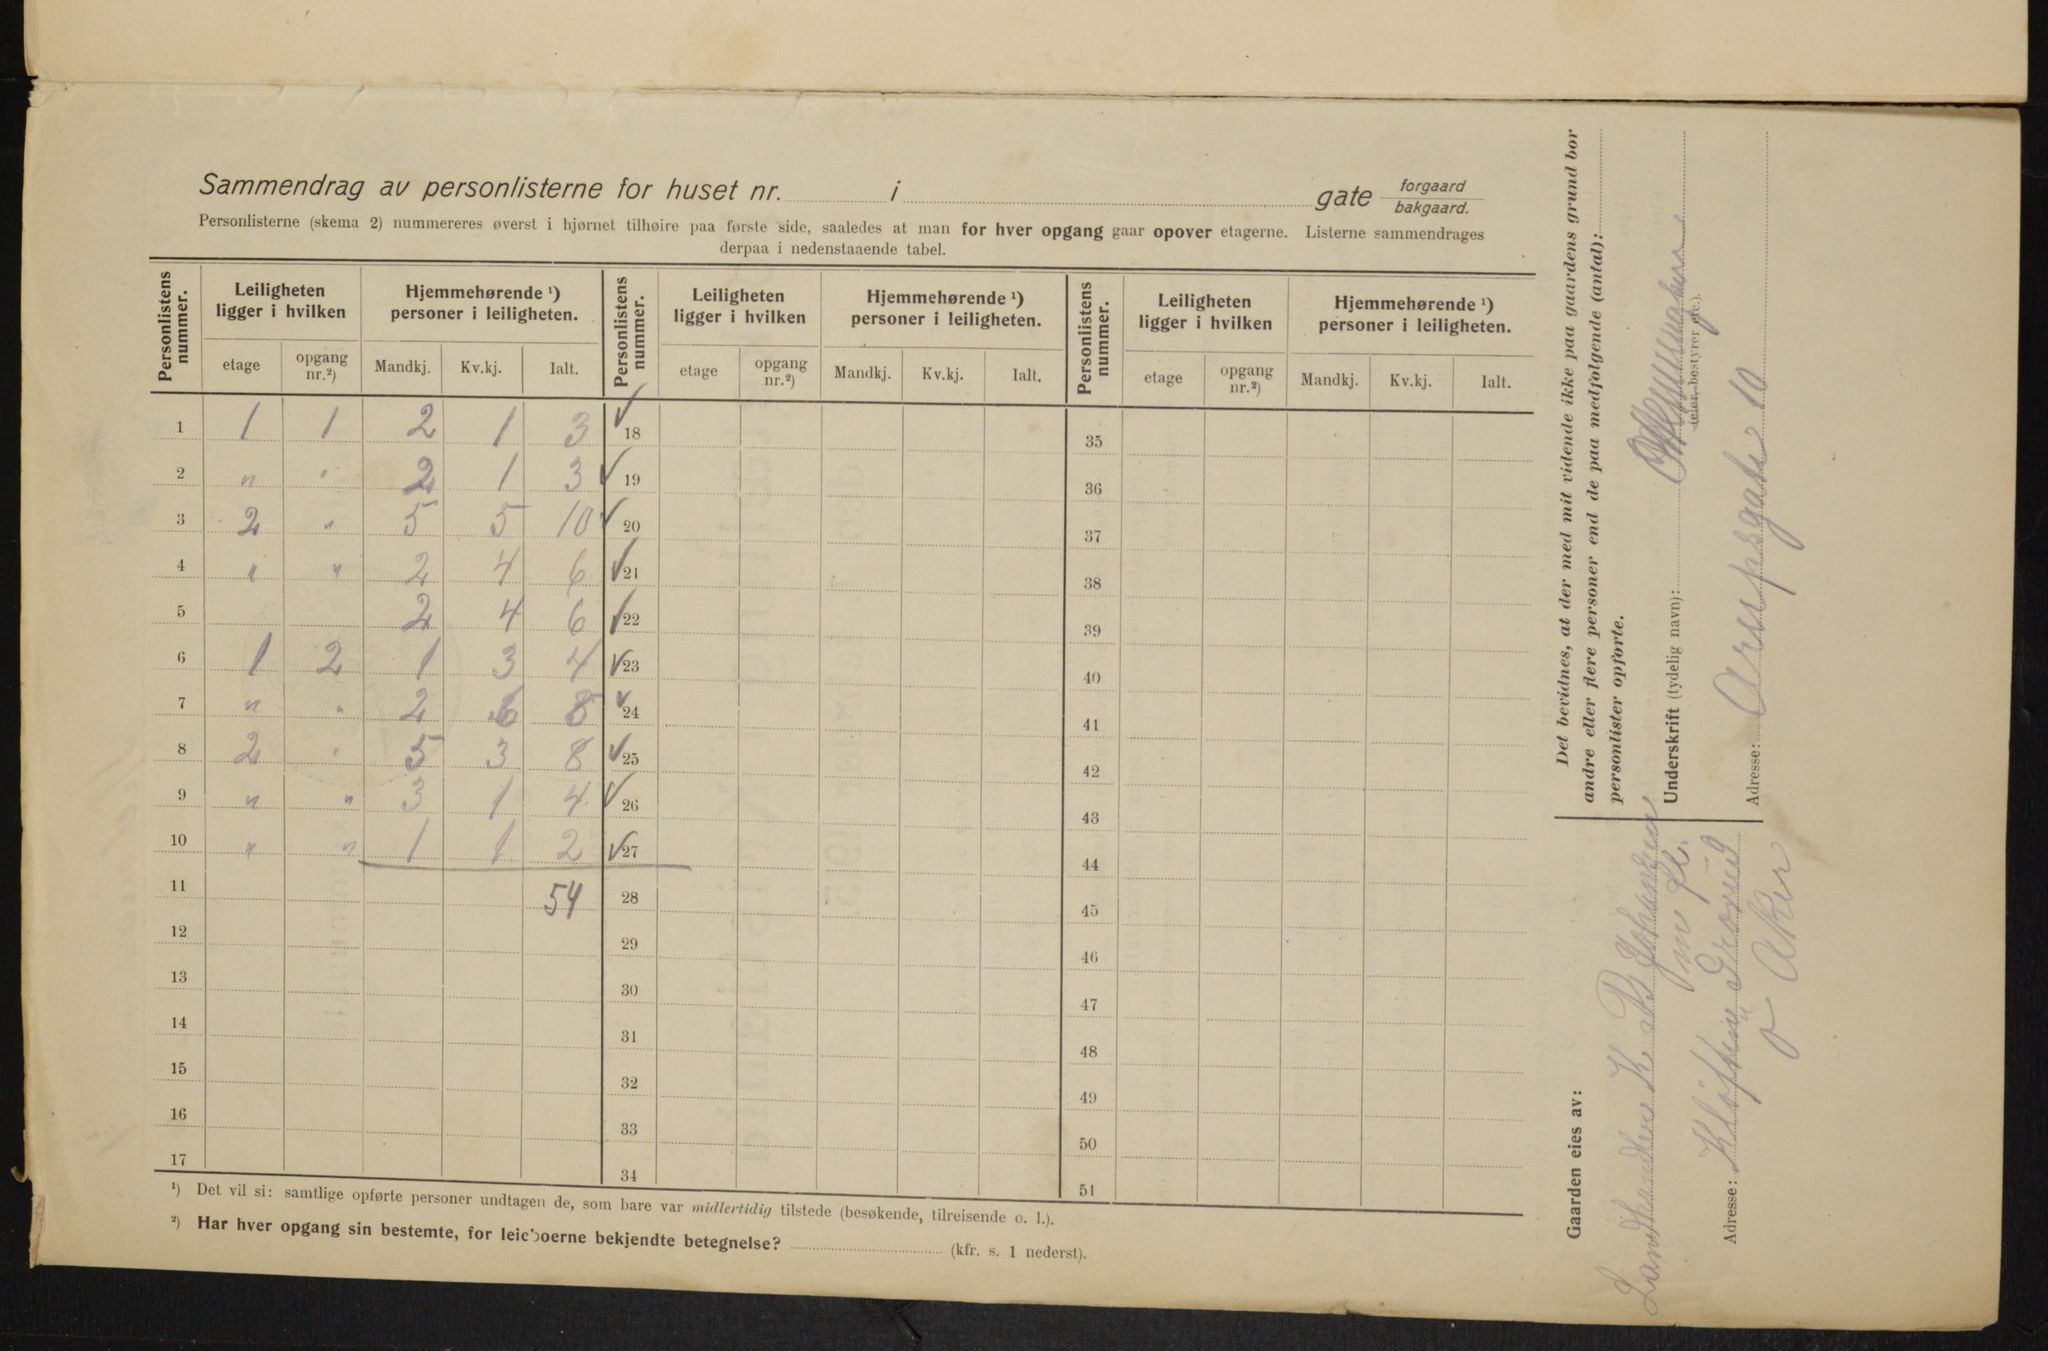 Sammendrag av personlisterne for huset nr. i gate forgaard bakgaard.
Personlisterne (skema 2) nummereres øverst i hjørnet tilhøire paa første side, saaledes at man for hver opgang gaar opover etagerne. Listerne sammendrages
derpaa i nedenstaaende tabel.
Personlistens nummer. Leiligheten ligger i hvilken Hjemmehørende ¹) personer i leiligheten. Personlistens nummer. Leiligheten ligger i hvilken Hjemmehørende ¹) personer i leiligheten. Personlistens nummer. Leiligheten ligger i hvilken Hjemmehørende ¹) personer i leiligheten.
etage opgang nr.²) Mandkj. Kv.kj. Ialt. etage opgang nr.²) Mandkj. Kv.kj. Ialt. etage opgang nr.²) Mandkj. Kv.kj. Ialt.
1 1 1 2 1 3 ✓ 18 35
2 " " 2 1 3 ✓ 19 36
3 2 " 5 5 10 ✓ 20 37
4 " " 2 4 6 ✓ 21 38
5 2 4 6 ✓ 22 39
6 1 2 1 3 4 ✓ 23 40
7 " " 2 6 8 ✓ 24 41
8 2 " 5 3 8 ✓ 25 42
9 " " 3 1 4 ✓ 26 43
10 " " 1 1 2 ✓ 27 44
11 54 28 45
12 29 46
13 30 47
14 31 48
15 32 49
16 33 50
17 34 51
¹) Det vil si: samtlige opførte personer undtagen de, som bare var midlertidig tilstede (besøkende, tilreisende o. l.).
²) Har hver opgang sin bestemte, for leieboerne bekjendte betegnelse? (kfr. s. 1 nederst).
Det bevidnes, at der med mit vidende ikke paa gaardens grund bor
andre eller flere personer end de paa medfolgende (antal):
personlister opforte.
Underskrift (tydelig navn):
(eier, bestyrer etc.).
Adresse: Arupsgate 10
Gaarden eies av:
Landhandler K. Johansen
m fl.
Adresse: Kløften Grorud
Aker